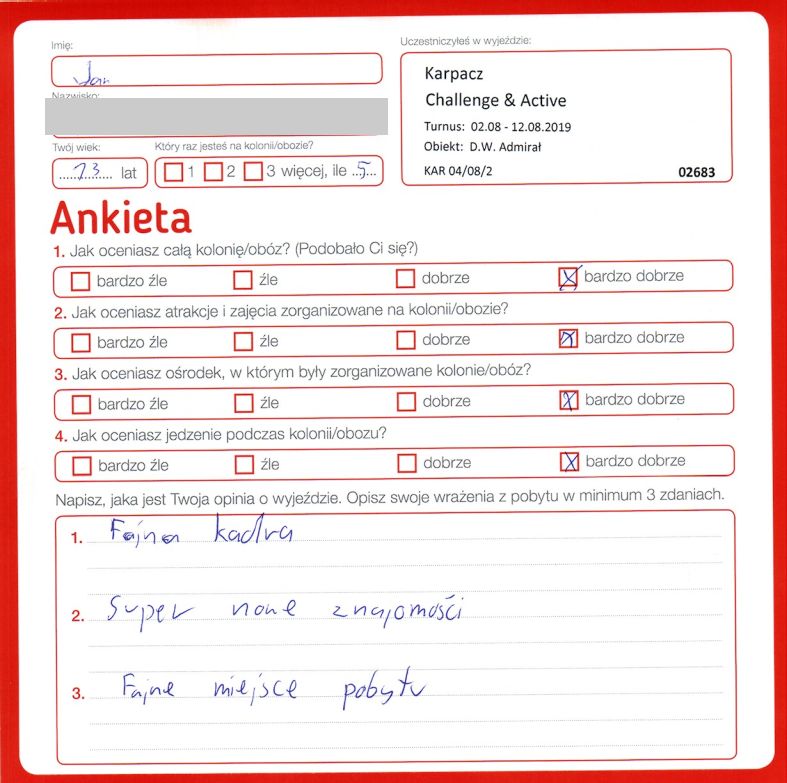 Imię:
Jan
Nazwisko:
Twój wiek:
13 lat
Który raz jesteś na kolonii/obozie?
1 2 3 więcej, ile ..5...
Uczestniczyłeś w wyjeździe:
Karpacz
Challenge & Active
Turnus: 02.08 - 12.08.2019
Obiekt: D.W. Admirał
KAR 04/08/2 02683
Ankieta
1. Jak oceniasz całą kolonię/obóz? (Podobało Ci się?)
bardzo źle źle dobrze bardzo dobrze
2. Jak oceniasz atrakcje i zajęcia zorganizowane na kolonii/obozie?
bardzo źle źle dobrze bardzo dobrze
3. Jak oceniasz ośrodek, w którym były zorganizowane kolonie/obóz?
bardzo źle źle dobrze bardzo dobrze
4. Jak oceniasz jedzenie podczas kolonii/obozu?
bardzo źle źle dobrze bardzo dobrze
Napisz, jaka jest Twoja opinia o wyjeździe. Opisz swoje wrażenia z pobytu w minimum 3 zdaniach.
1. Fajna kadra
2. Super nowe znajomości
3. Fajne miejsce pobytu